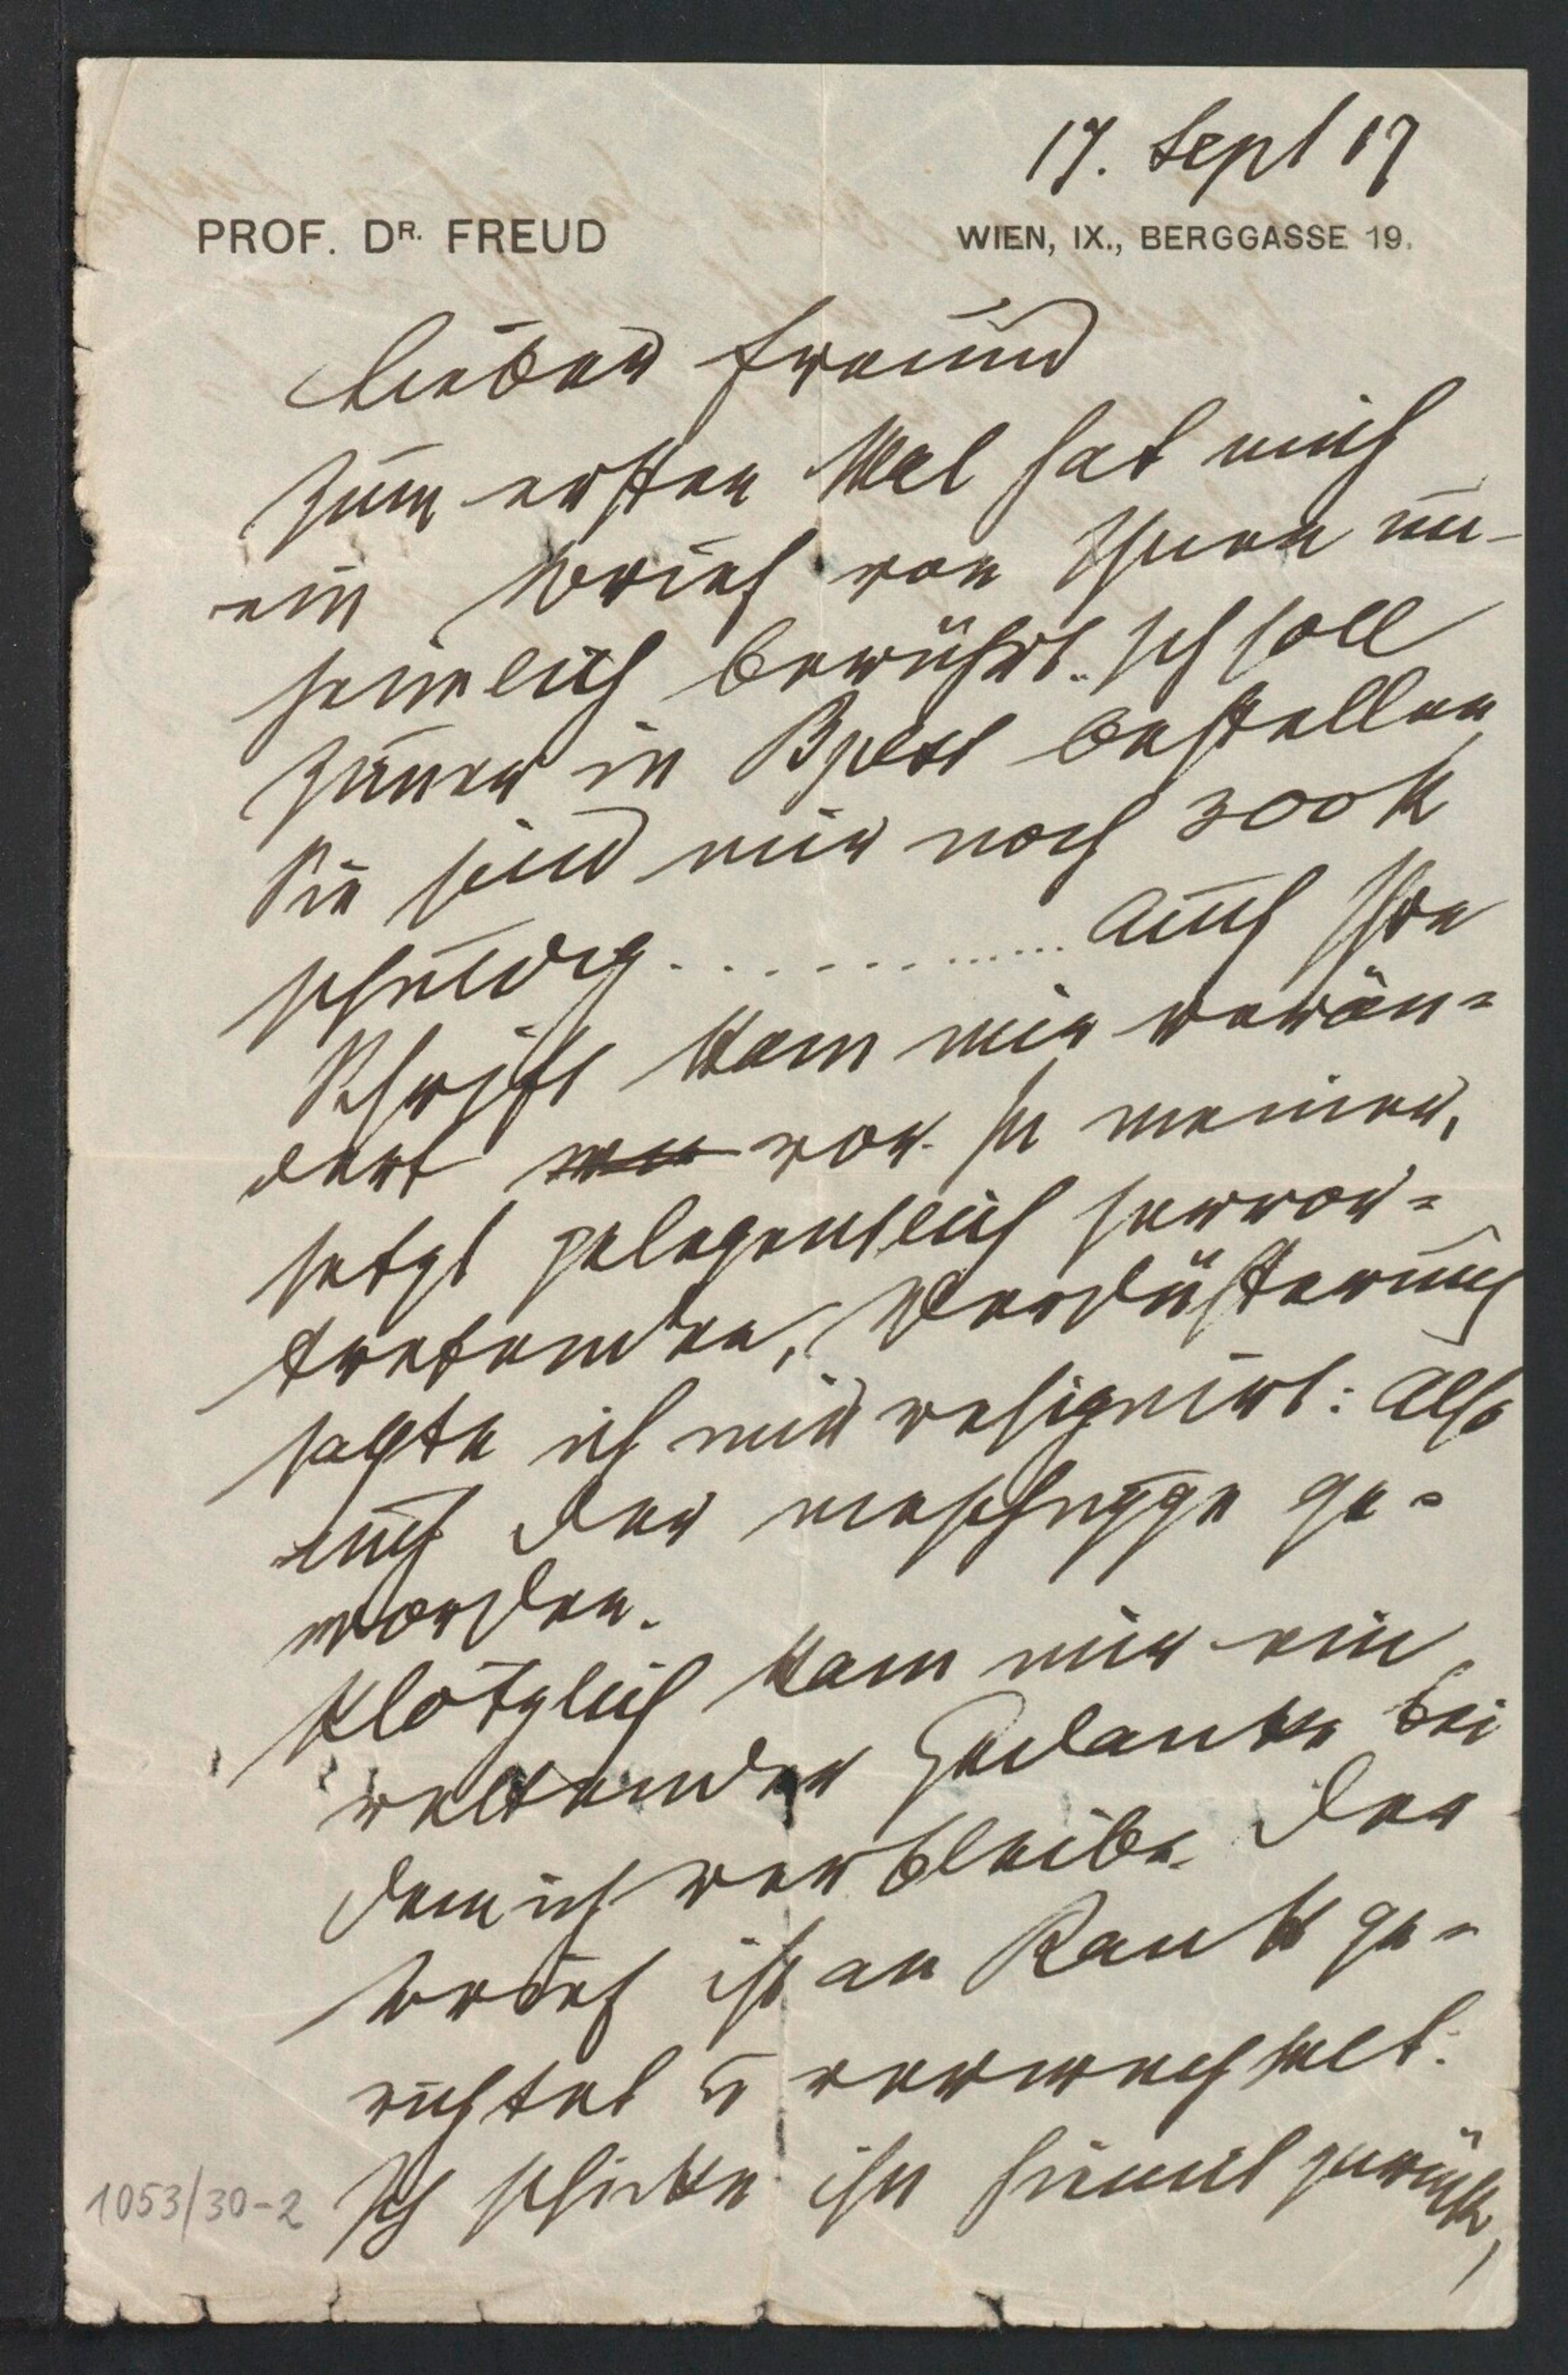 17. Sept 17
PROF. DR. FREUD WIEN, IX., BERGGASSE 19.
Lieber Freund
Zum ersten Mal hat mich
ein Brief von Ihnen un-
heimlich berührt. Ich soll
Zimmer in Bpest bestellen,
Sie sind mir noch 300 K
schuldig. . . . . . . . . . . . . Auch Ihre
Schrift kam mir verän-
dert vor. In meiner,
jetzt gelegentlich hervor-
tretenden, Verdüsterung
sagte ich mir resignirt: Also
auch der meschugge ge-
worden.
Plötzlich kam mir ein
rettender Gedanke bei
dem ich verbleibe. Der
Brief ist an Rank ge-
richtet u verwechselt.
Ich schicke ihn hiemit zurück,
1053/30-2